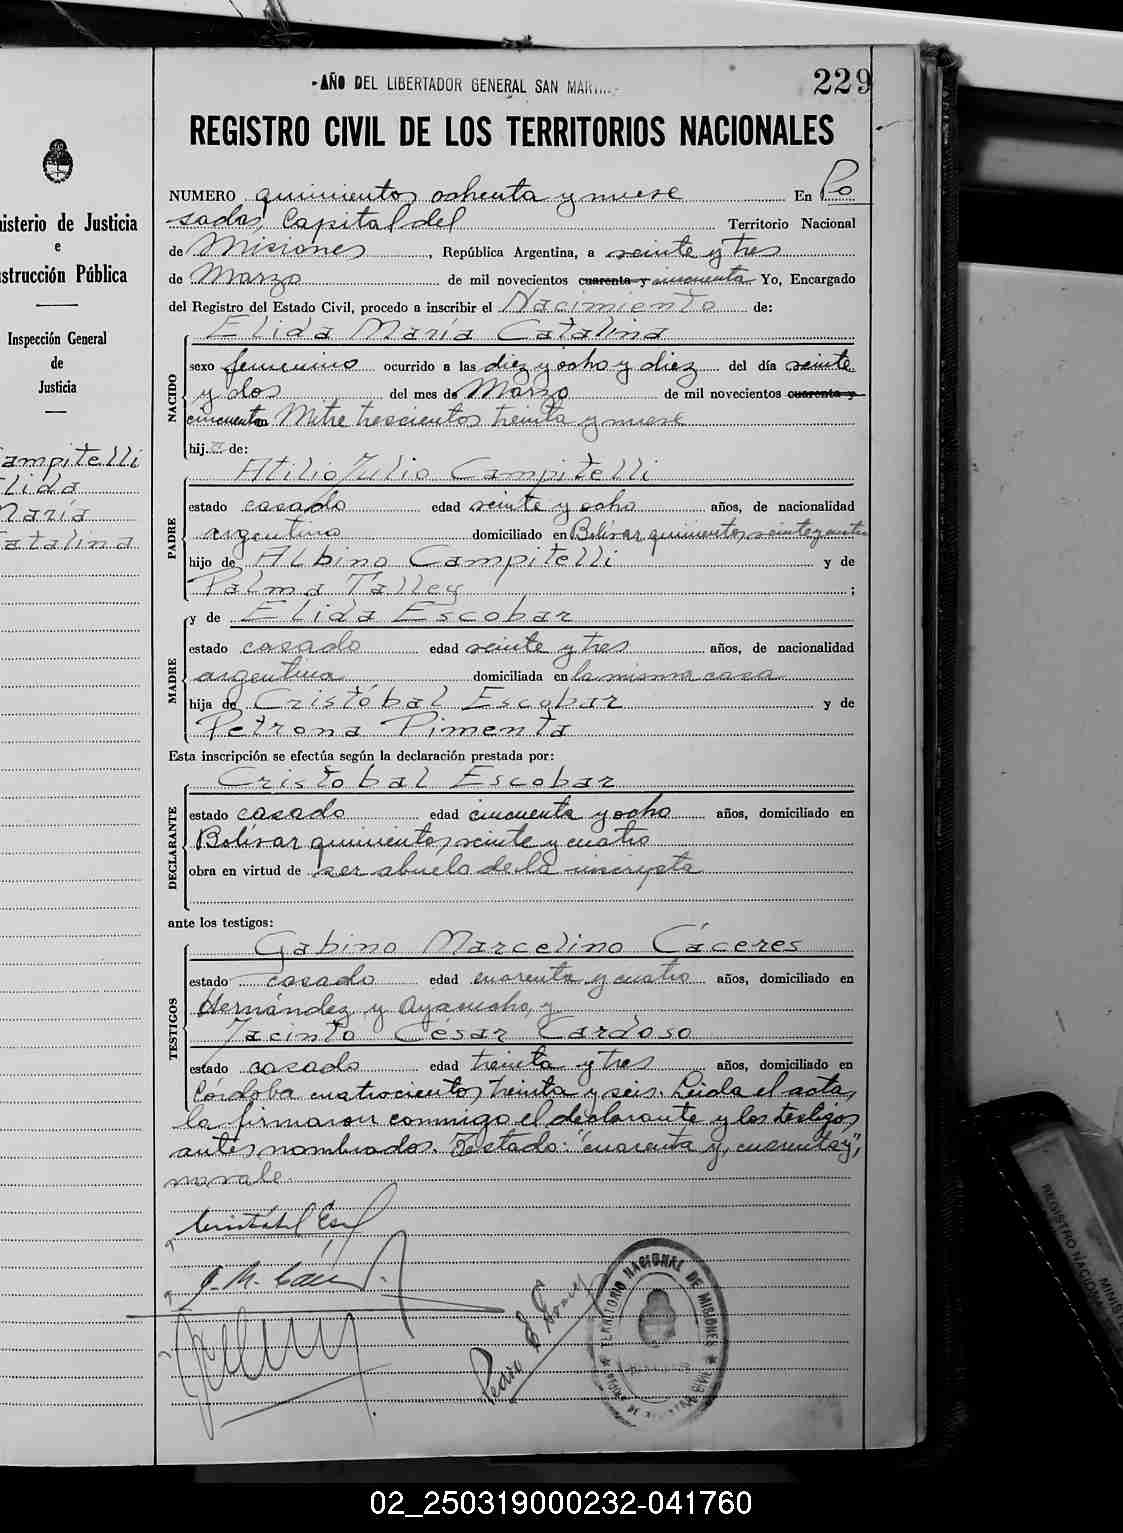 -AÑO DEL LIBERTADOR GENERAL SAN
229
REGISTRO CIVIL DE LOS TERRITORIOS NACIONALES
NUMERO quinientos ochenta y nueve En Po
sadas, Capital del Territorio Nacional
de Misiones, República Argentina, a veinte y tres
de Marzo de mil novecientos cuarenta y cincuenta Yo, Encargado
del Registro del Estado Civil, procedo a inscribir el Nacimiento de:
Elida María Catalina
NACIDO
sexo femenino ocurrido a las diez y ocho y diez del día veinte
y dos del mes de Marzo de mil novecientos cuarenta y
cincuenta Mitre trescientos treinta y nueve
hij de:
Atilio Julio Campitelli
PADRE
estado casado edad veinte y ocho años, de nacionalidad
argentino domiciliado en Bolívar quinientos veinte y cuatro
hijo de Albino Campitelli y de
Palma Talley;
y de Elida Escobar
MADRE
estado casada edad veinte y tres años, de nacionalidad
argentina domiciliada en la misma casa
hija de Cristóbal Escobar y de
Petrona Pimenta
Esta inscripción se efectúa según la declaración prestada por:
Cristobal Escobar
DECLARANTE
estado casado edad cincuenta y ocho años, domiciliado en
Bolívar quinientos veinte y cuatro
obra en virtud de ser abuelo de la inscripta
ante los testigos:
Gabino Marcelino Cáceres
TESTIGOS
estado casado edad cuarenta y cuatro años, domiciliado en
Hernández y Ayacucho, y
Jacinto César Cardoso
estado casado edad treinta y tres años, domiciliado en
Córdoba cuatrocientos treinta y seis. Leida el acta,
la firmaron conmigo el declarante y los testigos
antes nombrados. Testado: "cuarenta y, cuarenta y",
no vale.
G. M. Các
Pedro E Gomez
TERRITORIO NACIONAL DE MISIONES
nisterio de Justicia
e
strucción Pública
Inspección General
de
Justicia
ampitelli
lida
María
atalina
REGISTRO NACIONA
MINIST
02_250319000232-041760